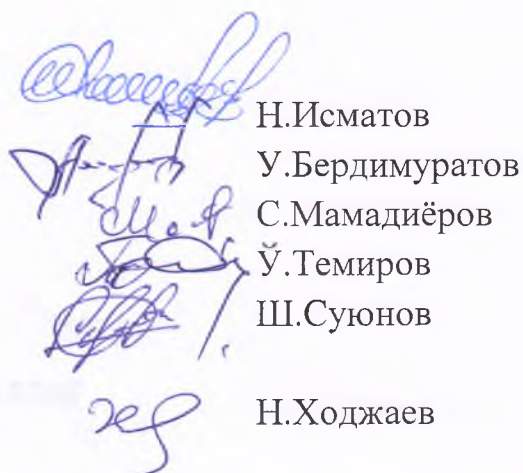 Н.Исматов
У.Бердимуратов
С.Мамадиёров
Ў.Темиров
Ш.Суюнов
Н.Ходжаев